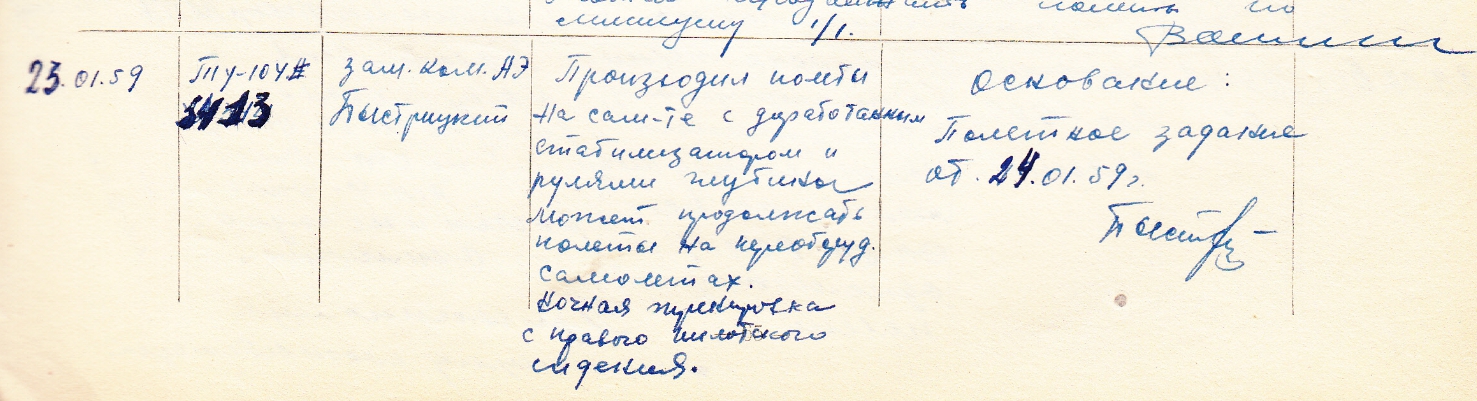 минимуму 1/1.
23.01.59
Ту-104Б
5413
зам. ком. АЭ
Быстрицкий
Производил полёты
на сам-те с доработанным
стабилизатором и
рулями глубины
может продолжать
полёты на переоборуд.
самолётах.
Ночная тренировка
с правого пилотского
сидения.
Основание:
Полётное задание
от 24.01.59г.